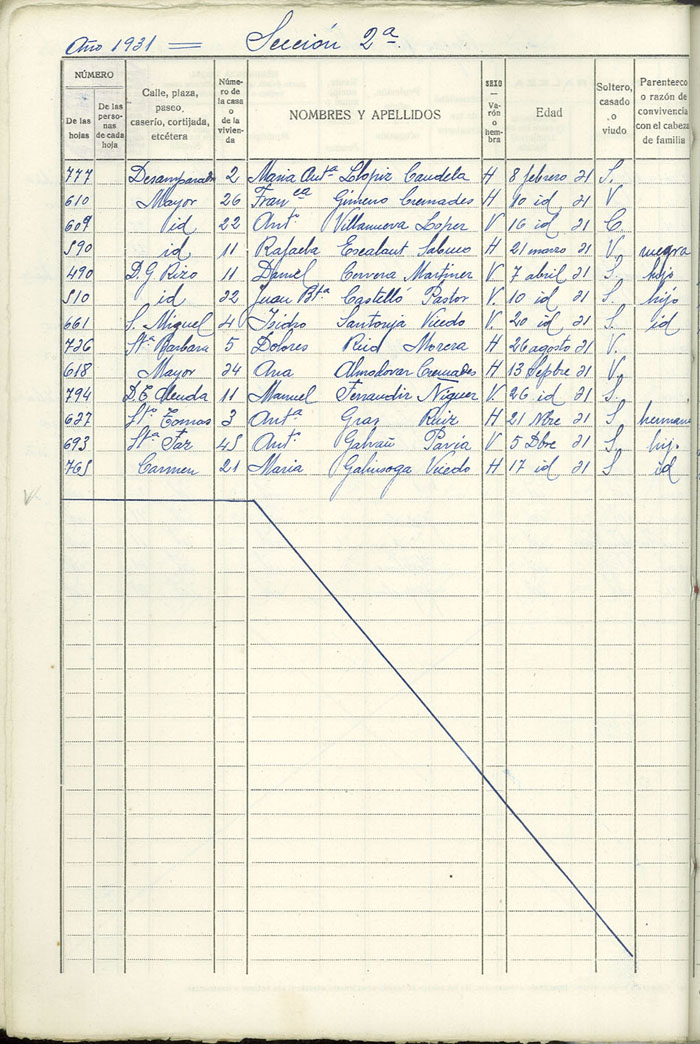 Año 1931 = Sección 2ª.
NÚMERO
De las hojas
De las personas de cada hoja
Calle, plaza, paseo, caserío, cortijada, etcétera
Número de la casa o de la vivienda
NOMBRES Y APELLIDOS
SEXO — Varón o hembra
Edad
Soltero, casado o viudo
Parentesco o razón de convivencia con el cabeza de familia
777 Desamparados 2 Maria Antª Llopiz Candela H 8 febrero 31 S.
610 Mayor 26 Franca Gimeno Cremades H 10 id 31 V
609 id 22 Antº Villanueva Lopez V 16 id 31 C.
590 id 11 Rafaela Escalant H 21 marzo 31 V. suegra
490 D. G Rizo 11 Daniel Cervera Martinez V 7 abril 31 S. hijo
510 id 22 Juan Btª Castelló Pastor V. 10 id 31 S. hijo
661 S. Miguel 4 Isidro Santonja Vicedo V. 20 id 31 S. id
736 Stª Barbara 5 Dolores Morera H 26 agosto 31 V.
618 Mayor 34 Ana Almodovar Cremades H 13 Sepbre 31 V.
794 11 Manuel Ferrandiz Niguez V. 26 id 31 S.
637 Sto Tomas 3 Antª Ruiz H 21 Nbre 31 S hermana
693 Stª Faz 45 Antº Galvañ Pavia V 5 Dbre 31 S hijo
765 Carmen 21 Maria Galiusoga Vicedo H 17 id 31 S id